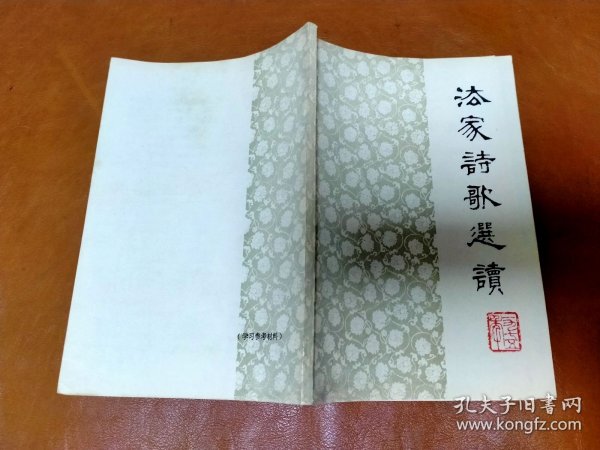 法家詩歌選讀
(学习参考材料)
孔夫子旧書网
www.kongfz.com